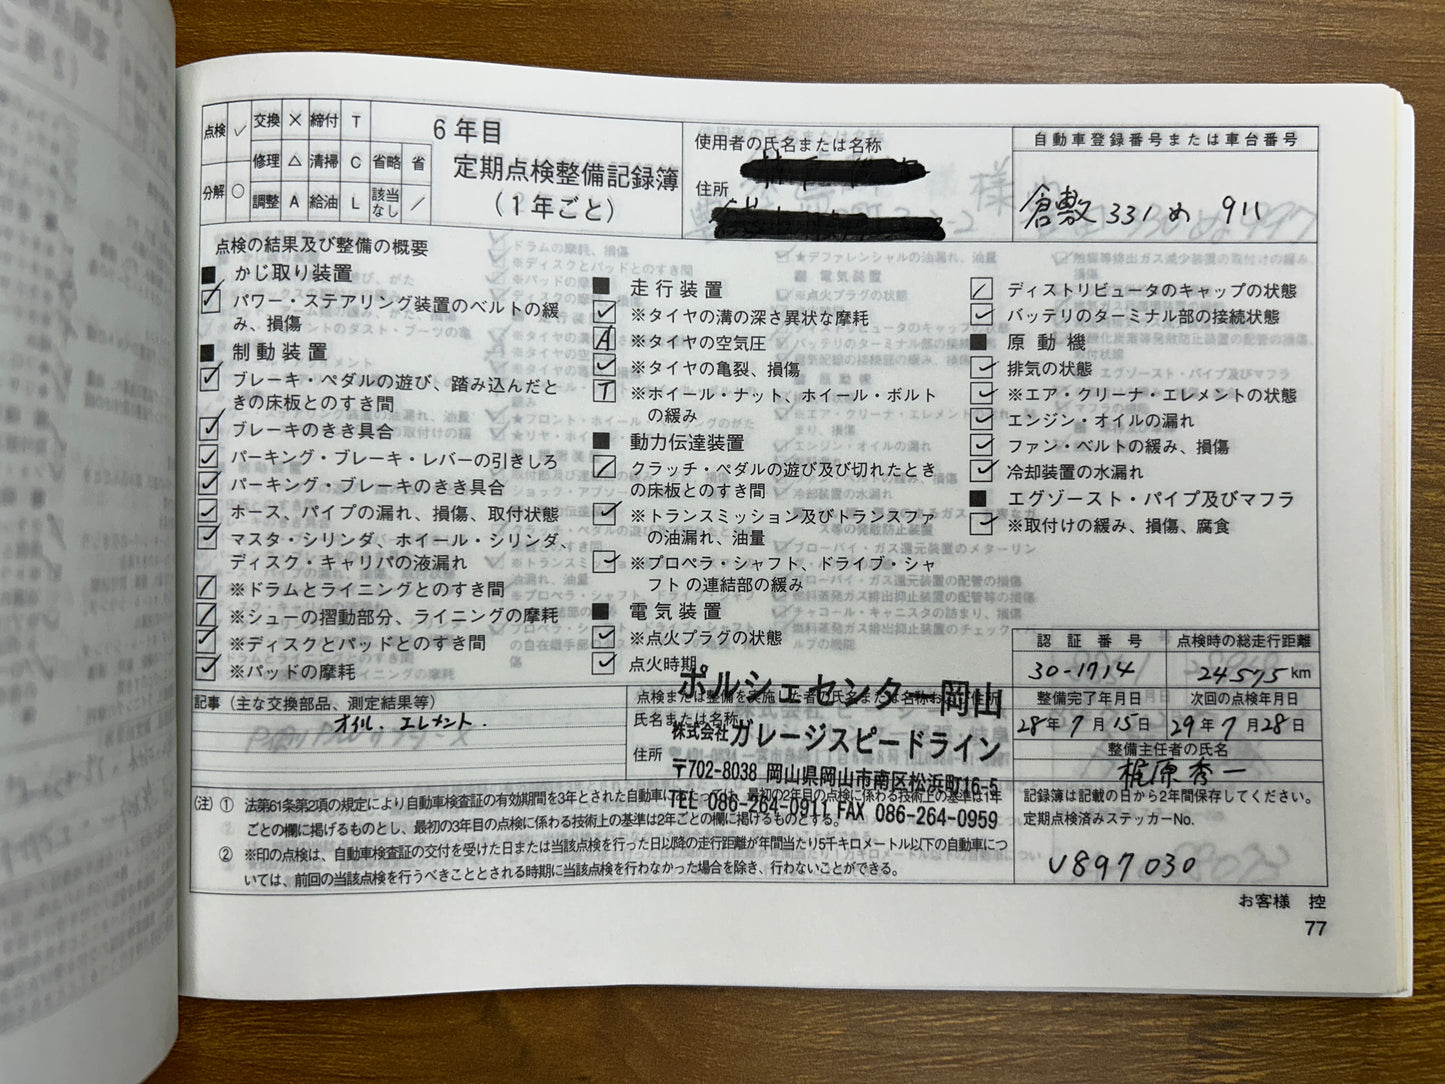 点検 ✓ 交換 × 締付 T
修理 △ 清掃 C 省略 省
分解 ○ 調整 A 給油 L 該当なし ／
6年目
定期点検整備記録簿
(1年ごと)
使用者の氏名または名称
住所
様
自動車登録番号または車台番号
倉敷 331 め 911
点検の結果及び整備の概要
■ かじ取り装置
✓ パワー・ステアリング装置のベルトの緩
み、損傷
■ 制動装置
✓ ブレーキ・ペダルの遊び、踏み込んだと
きの床板とのすき間
✓ ブレーキのきき具合
✓ パーキング・ブレーキ・レバーの引きしろ
✓ パーキング・ブレーキのきき具合
✓ ホース、パイプの漏れ、損傷、取付状態
✓ マスタ・シリンダ、ホイール・シリンダ、
ディスク・キャリパの液漏れ
／ ※ドラムとライニングとのすき間
／ ※シューの摺動部分、ライニングの摩耗
✓ ※ディスクとパッドとのすき間
✓ ※パッドの摩耗
■ 走行装置
✓ ※タイヤの溝の深さ異状な摩耗
A ※タイヤの空気圧
✓ ※タイヤの亀裂、損傷
T ※ホイール・ナット、ホイール・ボルト
の緩み
■ 動力伝達装置
／ クラッチ・ペダルの遊び及び切れたとき
の床板とのすき間
✓ ※トランスミッション及びトランスファ
の油漏れ、油量
✓ ※プロペラ・シャフト、ドライブ・シャ
フトの連結部の緩み
■ 電気装置
✓ ※点火プラグの状態
✓ 点火時期
／ ディストリビュータのキャップの状態
✓ バッテリのターミナル部の接続状態
■ 原動機
✓ 排気の状態
✓ ※エア・クリーナ・エレメントの状態
✓ エンジン・オイルの漏れ
✓ ファン・ベルトの緩み、損傷
✓ 冷却装置の水漏れ
■ エグゾースト・パイプ及びマフラ
✓ ※取付けの緩み、損傷、腐食
認証番号
30-1714
点検時の総走行距離
24575 km
整備完了年月日
28年7月15日
次回の点検年月日
29年7月28日
整備主任者の氏名
梶原秀一
記事（主な交換部品、測定結果等）
オイル、エレメント.
点検または整備を実施した者の氏名または名称および住所
氏名または名称
住所
ポルシェセンター岡山
株式会社ガレージスピードライン
〒702-8038 岡山県岡山市南区松浜町16-5
TEL 086-264-0911 FAX 086-264-0959
(注) ① 法第61条第2項の規定により自動車検査証の有効期間を3年とされた自動車に は、最初の2年目の点検に係わる技術上の基準は1年
ごとの欄に掲げるものとし、最初の3年目の点検に係わる技術上の基準は2年ごとの欄に掲げるものとする。
② ※印の点検は、自動車検査証の交付を受けた日または当該点検を行った日以降の走行距離が年間当たり5千キロメートル以下の自動車につ
いては、前回の当該点検を行うべきこととされる時期に当該点検を行わなかった場合を除き、行わないことができる。
記録簿は記載の日から2年間保存してください。
定期点検済みステッカーNo.
V897030
お客様 控
77